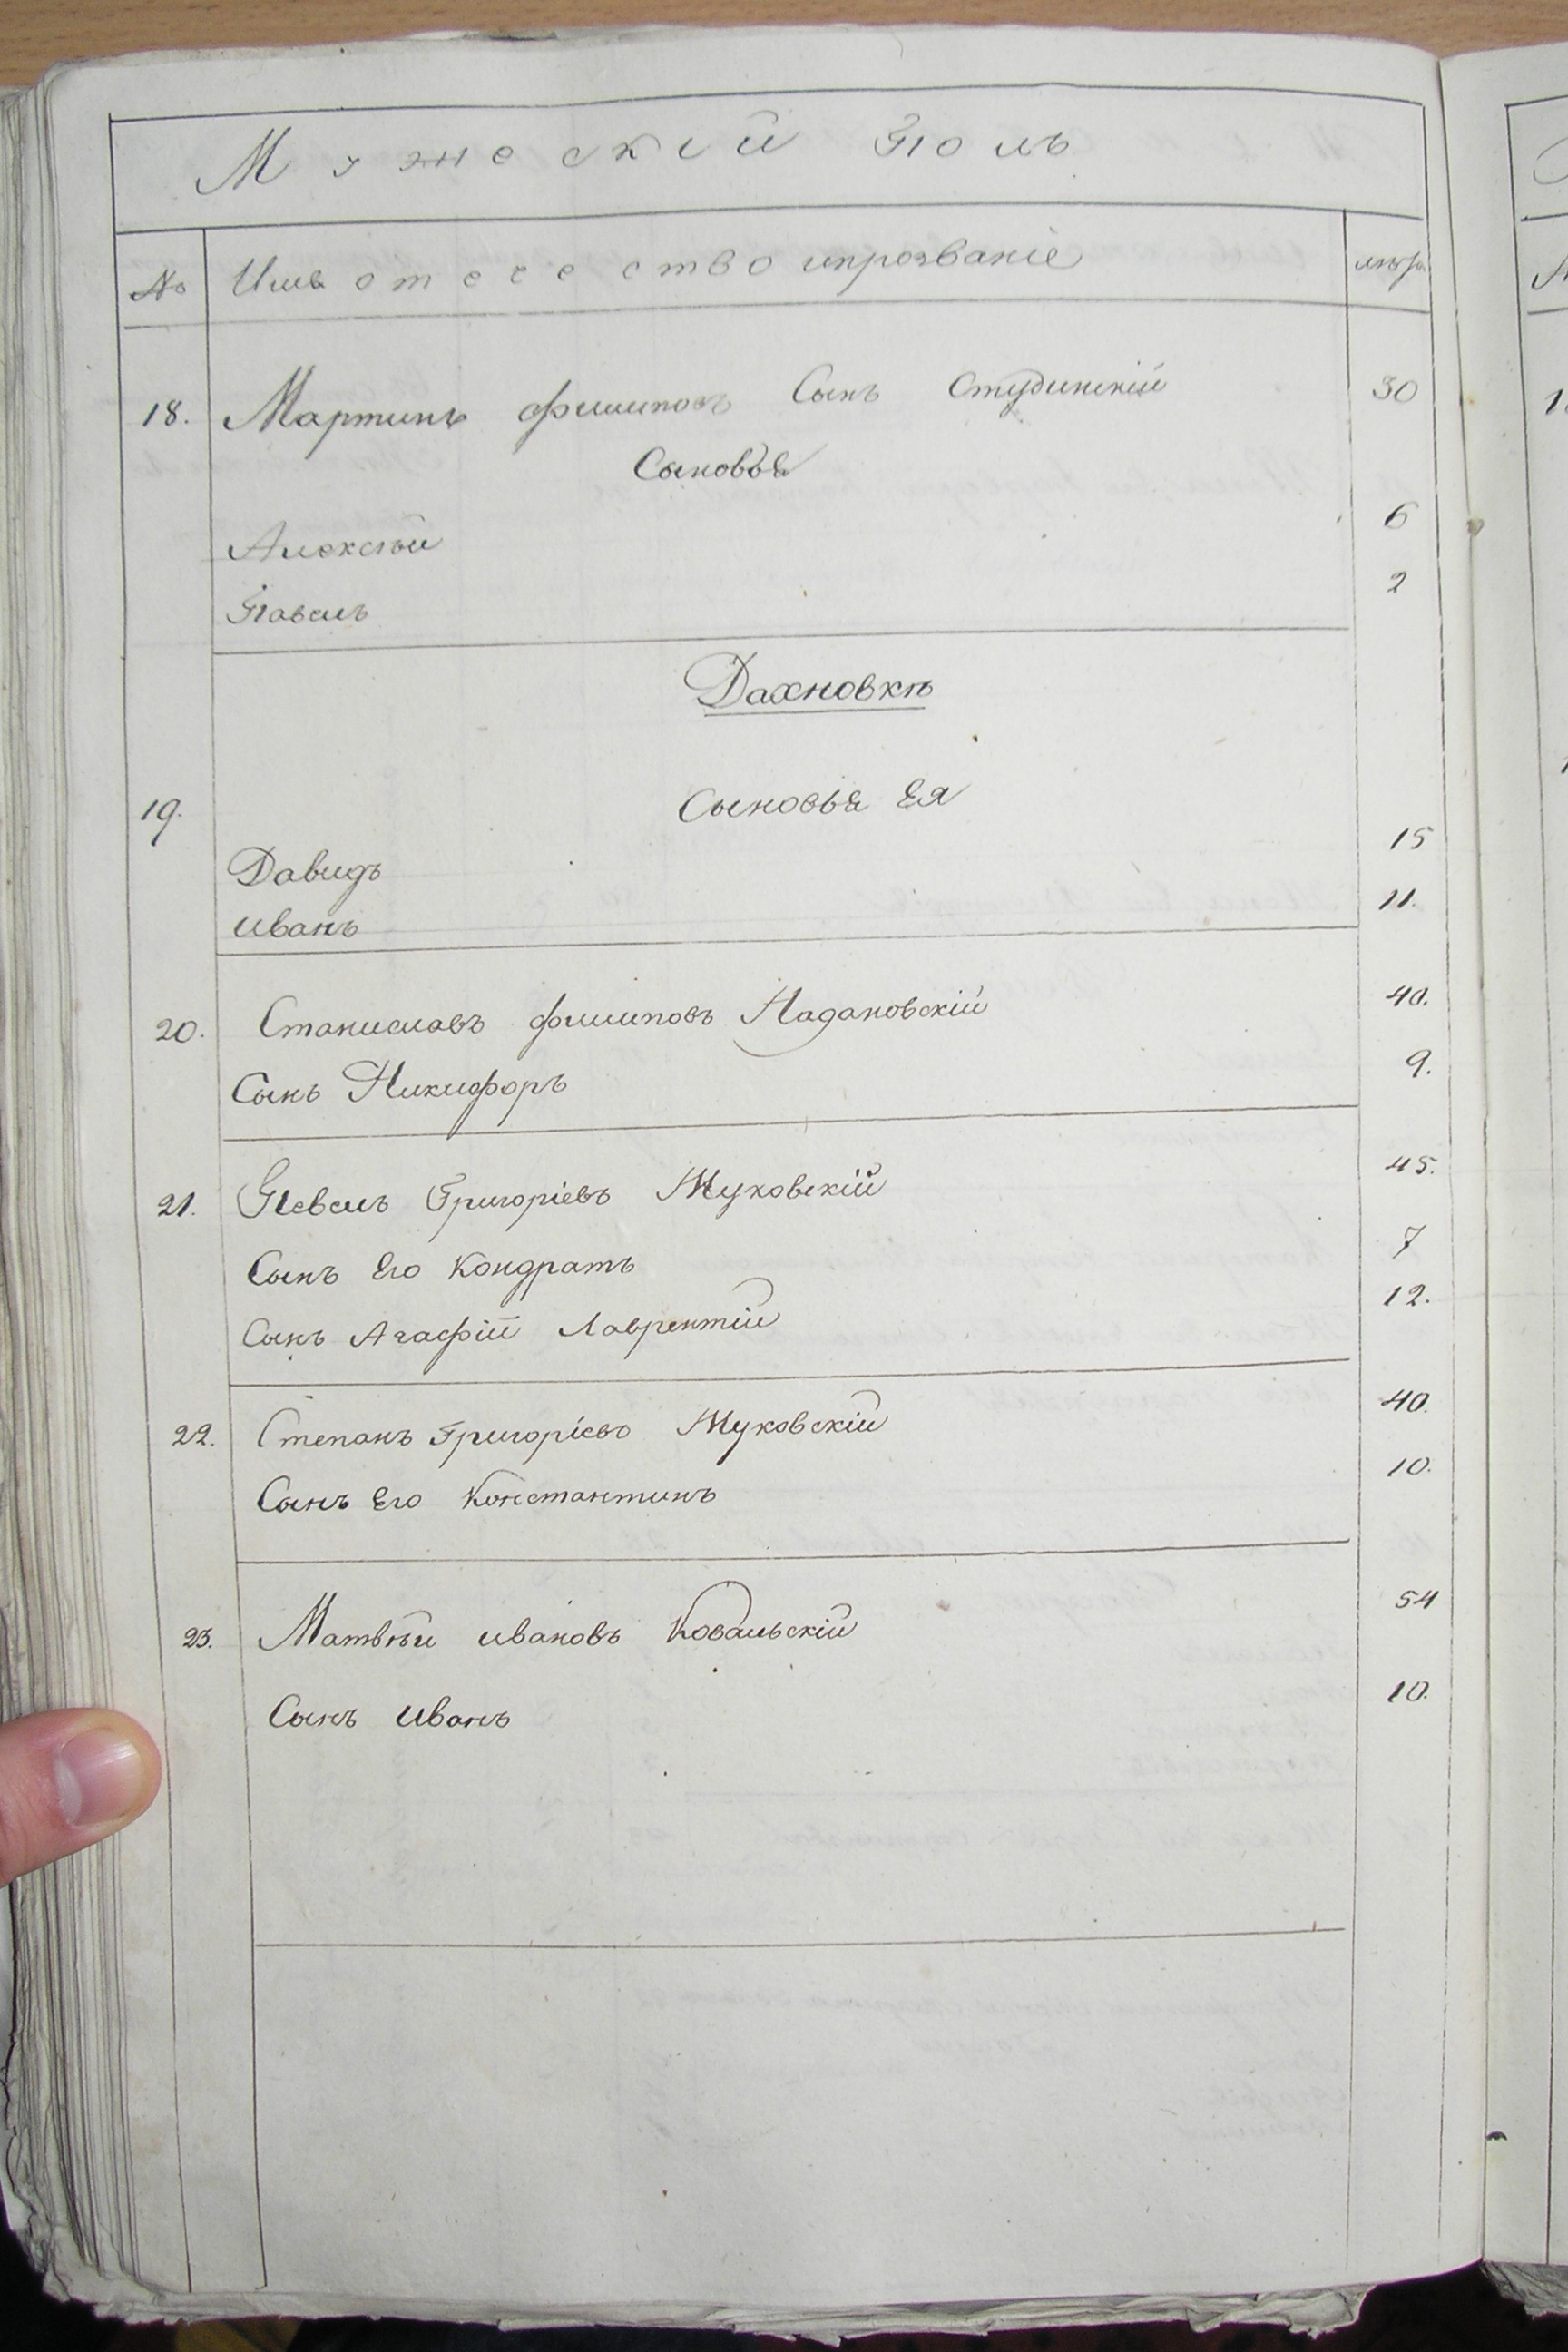 Мужескій Полъ
№ Имя отечество ипрозваніе лѣта
18. Мартинъ филиповъ Сынъ Студинскій 30
Сыновья
Алексѣй 6
Павелъ 2
Дахновкѣ
19. Сыновья Ея
Давидъ 15
иванъ 11.
20. Станиславъ филиповъ Надановскій 40.
Сынъ Никифоръ 9.
21. Павелъ Григоріевъ Жуковскій 45.
Сынъ Его Кондратъ 7
Сынъ Агафіи Лаврентій 12.
22. Степанъ Григоріевъ Жуковскій 40.
Сынъ Его Константинъ 10.
23. Матвѣй ивановъ Ковальскій 54
Сынъ иванъ 10.